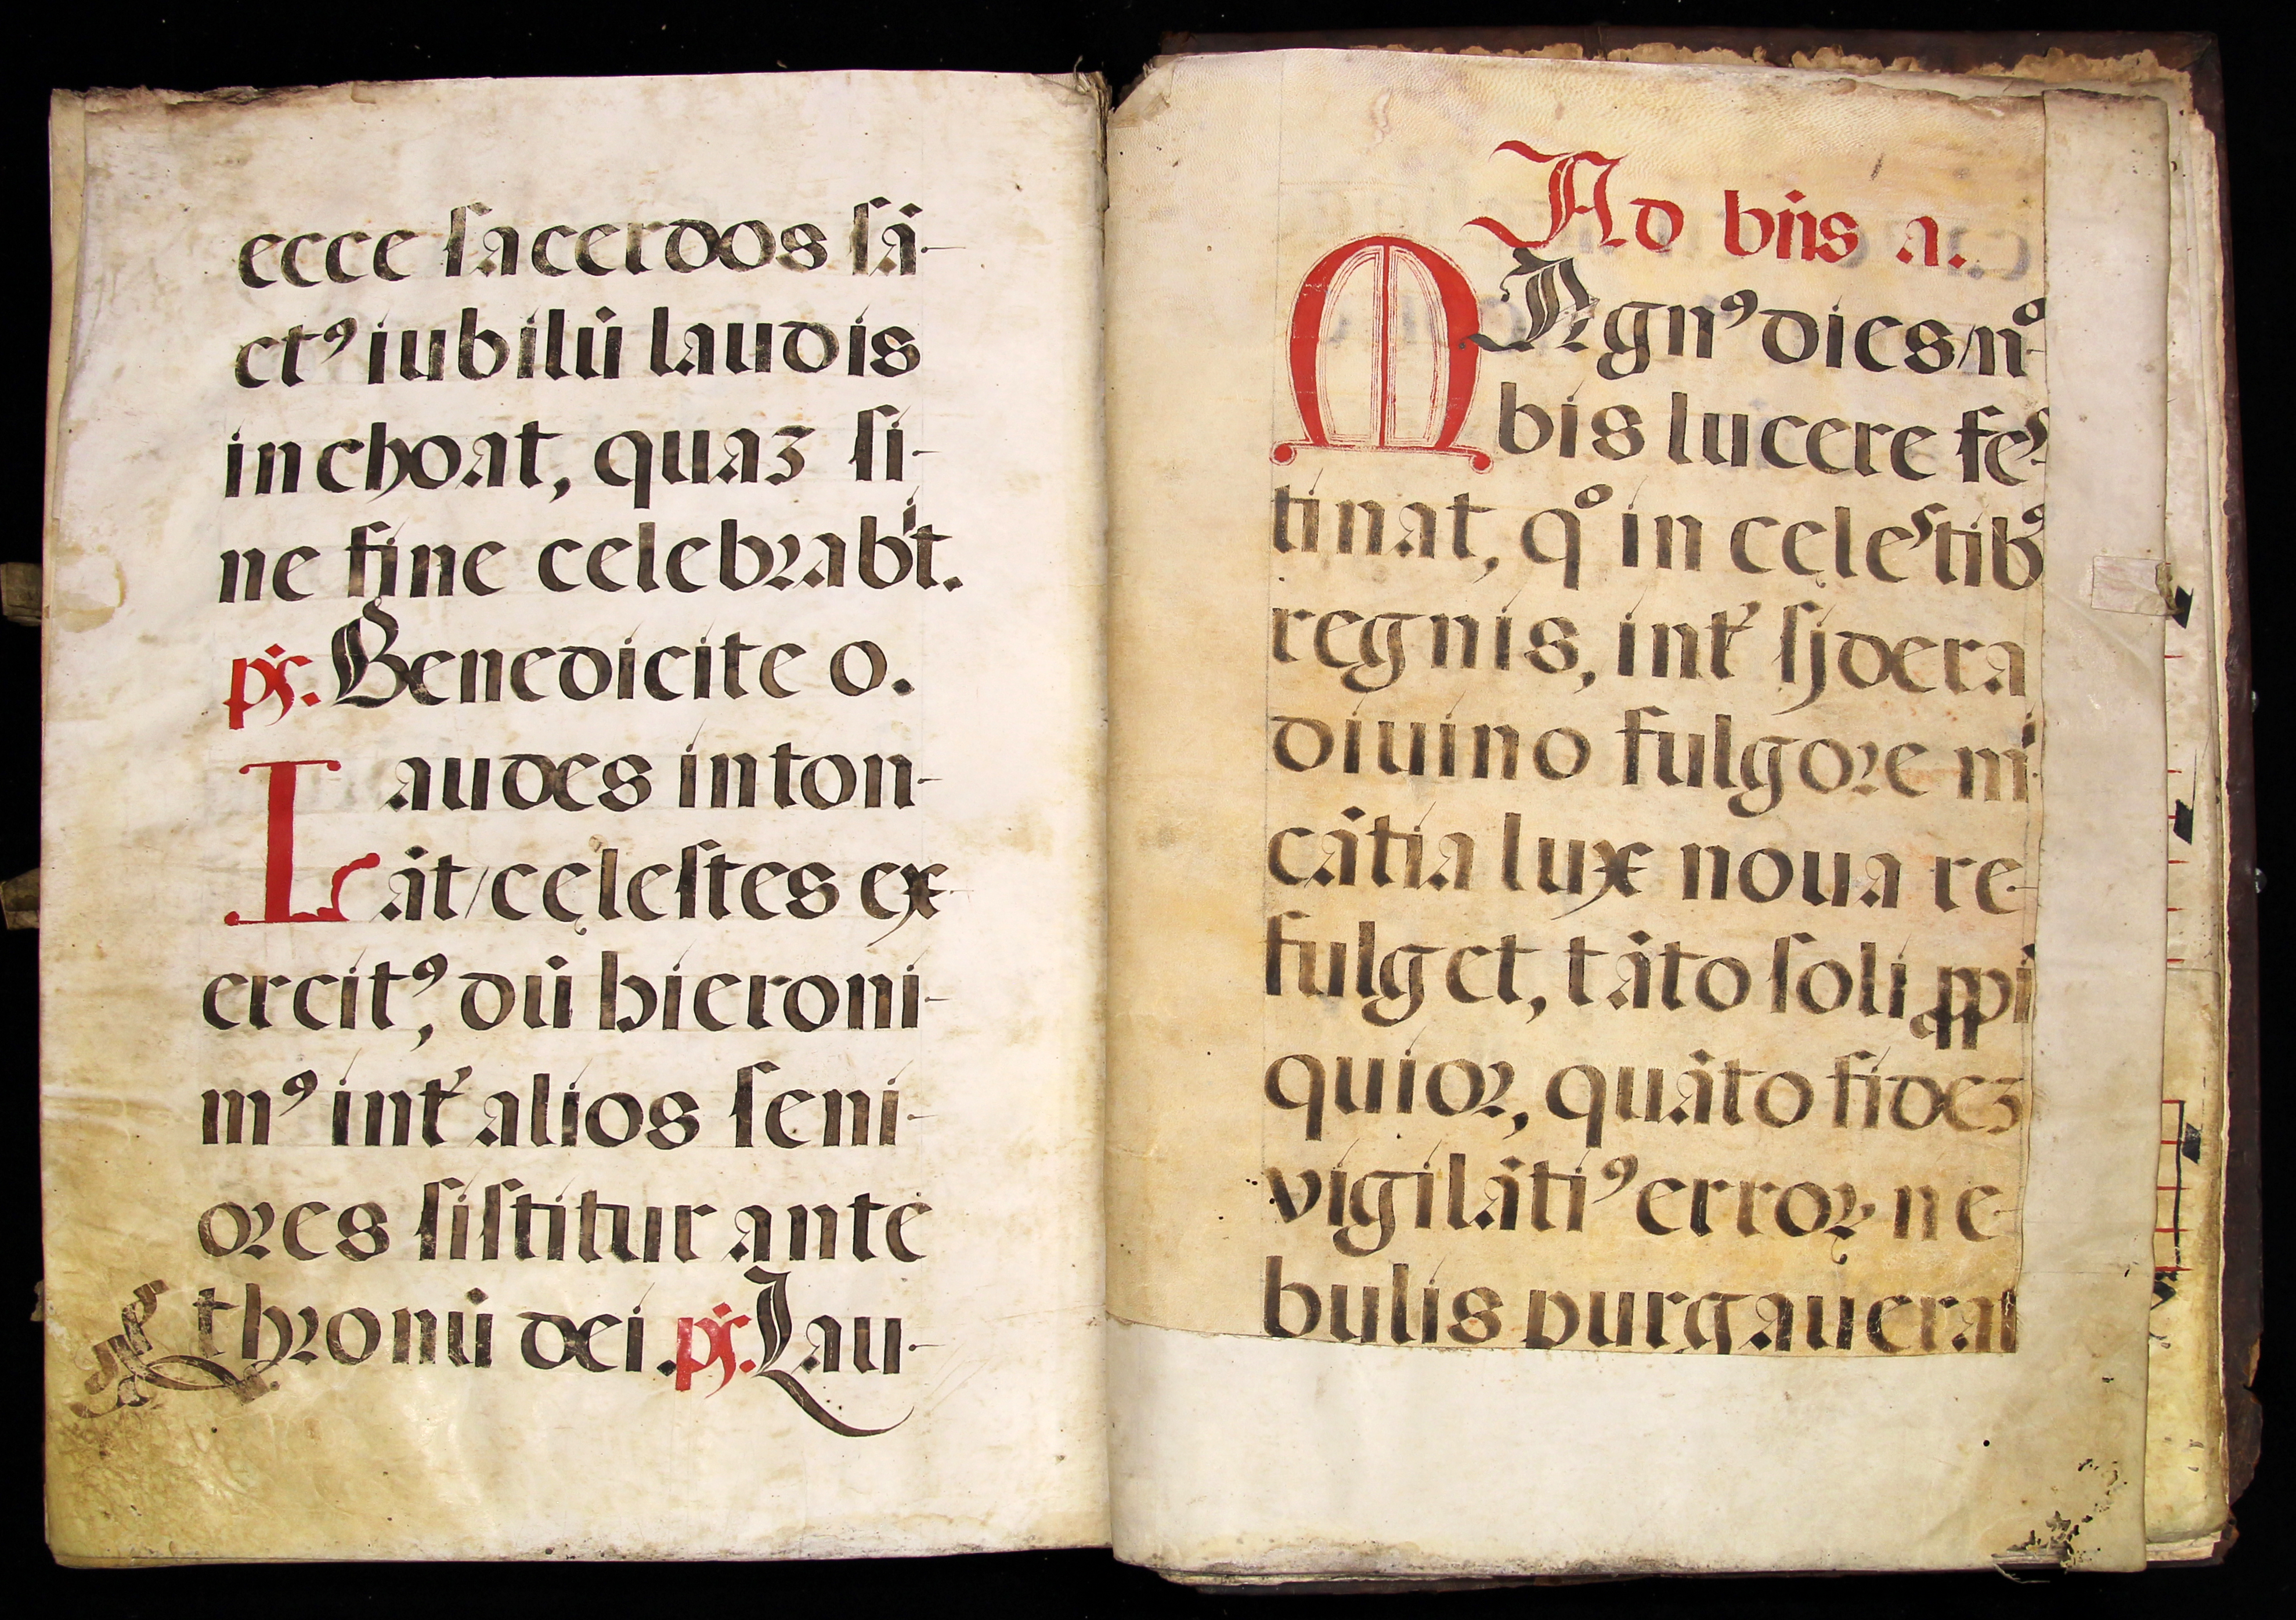 ecce sacerdos sā-
ctꝰ iubilū laudis
inchoat, quaꝫ si-
ne fine celebrabt̄.
ps. Benedicite o.
Laudes inton-
āt/cęlestes ex-
ercitꝰ, dū hieroni-
mꝰ int̓ alios seni-
ores sistitur ante
thronū dei. ps. Lau-
Ad bn̄s a.
MAgnꝰ dies/nº
bis lucere fes-
tinat, qº in cęlestibꝰ
regnis, int̓ sydera
diuino fulgore mi-
cātia lux noua re-
fulget, tāto soli ꝓpi
quior, quāto fideꝫ
vigilātiꝰ erroꝝ ne-
bulis purgauerat